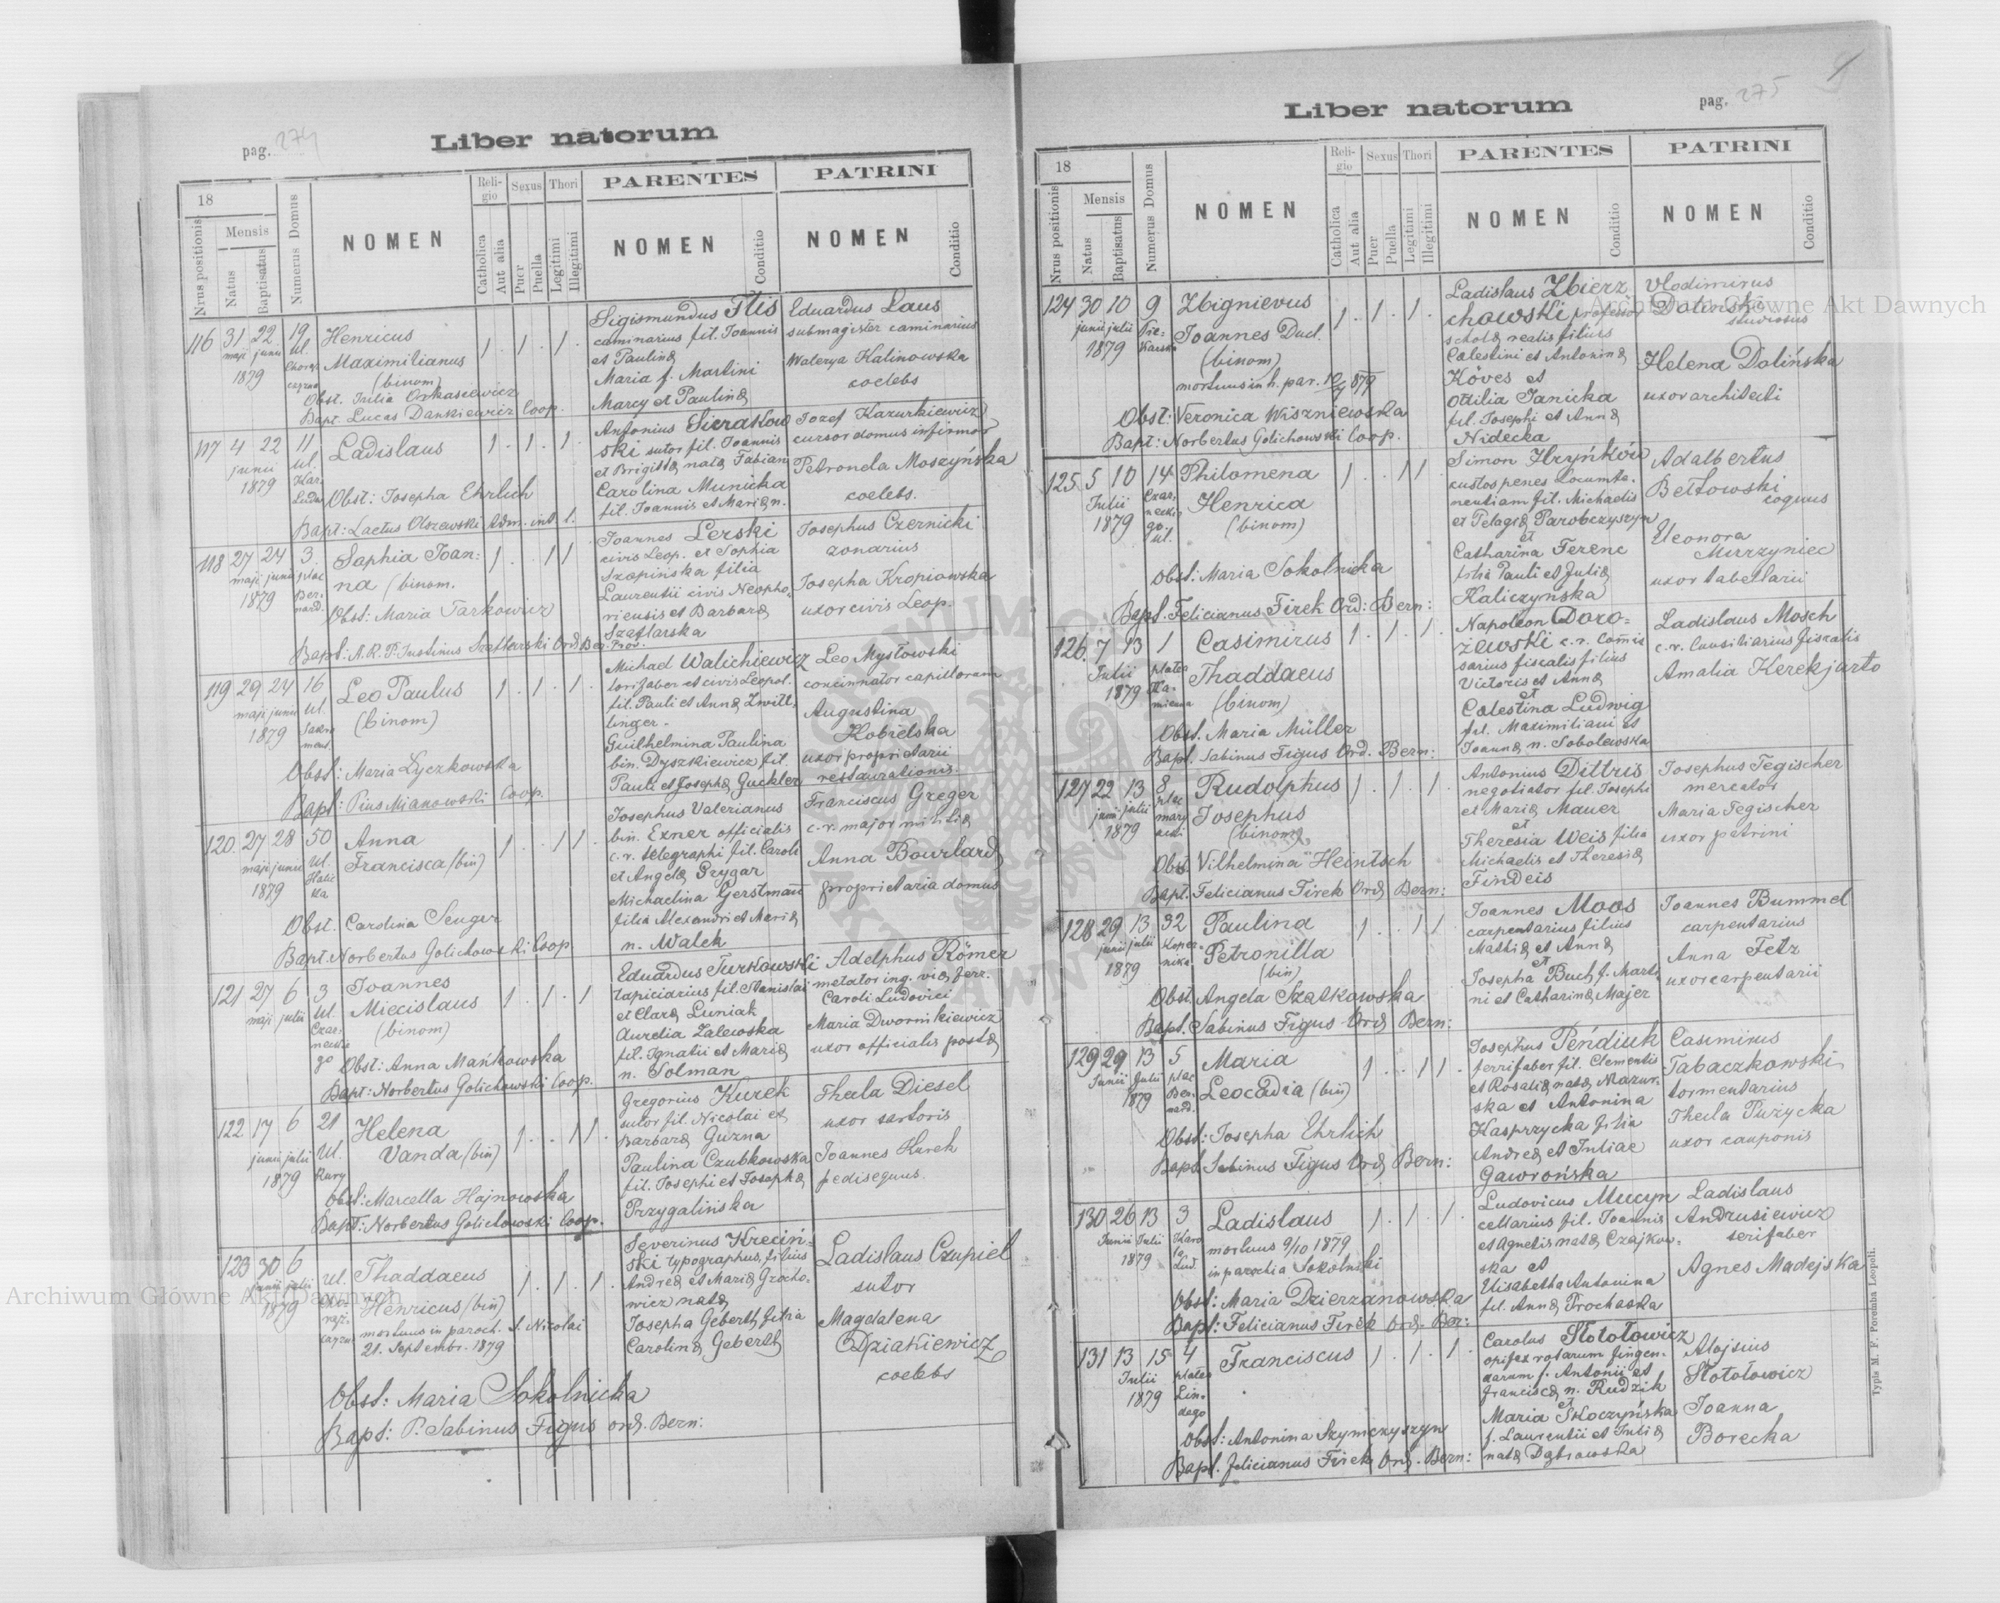 pag. 274
Liber natorum
18
Nrus positionis
Mensis
Natus
Baptisatus
Numerus Domus
NOMEN
Religio
Catholica
Aut alia
Sexus
Puer
Puella
Thori
Legitimi
Illegitimi
PARENTES
NOMEN
Conditio
PATRINI
NOMEN
Conditio
116 31 22 19
maji junii ul.
1879
Henricus
Maximilianus
(binom)
Bapt. Lucas Dankiewicz Coop.
1 . 1 . 1 .
Sigismundus
caminarius fil. Joannis
et Paulinæ
Maria f. Martini
Marcy et Paulinæ
Eduardus Laus
submagister caminarius
Walerya Kalinowska
coelebs
117 4 22 11
junii ul.
1879
Ladislaus
Obst: Josepha Ehrlich
Bapt: Laetus Olszewski Adm.
1 . 1 . 1 .
Antonius Sierakow
ski sutor fil. Joannis
et Brigittæ natæ Fabian
Carolina Municka
fil. Joannis et Mariæ n.
Jozef Kazurkiewicz
cursor domus infirmor
Petronela Moszyńska
coelebs.
118 27 24 3
maji junii plac
1879 Bernard.
Sophia Joan:
na (binom.
Obst: Maria Tarkowicz
Bapt: A. R. P. Justinus Szaflarski Ord. Ber. Prov.
1 . . 1 1
Joannes Lerski
civis Leop. et Sophia
Szopińska filia
Laurentii civis Neopho-
riensis et Barbaræ
Szaflarska
Josephus Czernicki
zonarius
Josepha Kropiowska
uxor civis Leop.
119 29 24 16
maji junii ul.
1879
Leo Paulus
(binom)
Obst: Maria Łyczkowska
Bapt: Pius Mianowski Coop.
1 . 1 . 1 .
Michael Walichiewicz
lorifaber et civis Leopol.
fil. Pauli et Annæ Zwitt-
linger.
Guilhelmina Paulina
bin. Dyszkiewicz fil.
Pauli et Josephæ Guckler
Leo Mysłowski
concinnator capillorum
Augustina
Kobielska
uxor proprietarii
restaurationis.
120. 27 28 50
maji junii ul.
1879 Halic
ka
Anna
Francisca (bin)
Obst. Carolina Senger
Bapt Norbertus Golichowski Coop.
1 . . 1 1
Josephus Valerianus
bin. Exner officialis
c. r. telegraphi fil. Caroli
et Angelæ Grygar
Michaelina Gerstmann
filia Alexandri et Mariæ
n. Walek
Franciscus Greger
c. r. major militiæ
Anna Bourlard
proprietaria domus
121 27 6 3
maji julii ul.
Czar
neckie
go
Joannes
Miecislaus
(binom)
Obst: Anna Mańkowska
Bapt: Norbertus Golichowski Coop.
1 . 1 . 1
Eduardus Turkowski
tapiciarius fil. Stanislai
et Claræ Luniak
Aurelia Zalewska
fil. Ignatii et Mariæ
n. Solman
Adelphus Römer
metator ing. viæ ferr.
Caroli Ludovici
Maria Dwornikiewicz
uxor officialis postæ
122 17 6 21
junii julii ul.
1879 Rury
Helena
Vanda (bin)
Obst: Marcella Hajnowska
Bapt: Norbertus Golichowski Coop.
1 . . 1 1 .
Gregorius Kurek
sutor fil. Nicolai et
Barbaræ Guzna
Paulina Czubkowska
fil. Josephi et Josephæ
Przygalińska
Thecla Diesel
uxor sartoris
Joannes Kurek
pedisequus.
123 30 6
junii julii ul.
1879
Thaddaeus
Henricus (bin)
mortuus in paroch. S. Nicolai
21. Septembr. 1879
Obst: Maria Sokolnicka
Bapt: P. Sabinus Figus Ord. Bern:
1 . 1 . 1 .
Severinus Krecin-
ski typographus, filius
Andreæ et Mariæ Grocho-
wicz natæ
Josepha Geberth filia
Carolinæ Geberth
Ladislaus Czupiel
sutor
Magdalena
Dziakiewicz
coelebs
pag. 275
Liber natorum
18
Nrus positionis
Mensis
Natus
Baptisatus
Numerus Domus
NOMEN
Religio
Catholica
Aut alia
Sexus
Puer
Puella
Thori
Legitimi
Illegitimi
PARENTES
NOMEN
Conditio
PATRINI
NOMEN
Conditio
124 30 10 9
junii julii
1879
Zbignievus
Joannes Ducl.
(binom)
Obst: Veronica Wiszniewska
Bapt: Norbertus Golichowski Coop.
1 . 1 . 1 .
Ladislaus Zbierz
chowski professor
scholæ realis filius
Cœlestini et Antoninæ
Köves et
Ottilia Janicka
fil. Josephi et Annæ
Nidecka
Vlodimirus
Dolinski
studiosus
Helena Dolińska
uxor architecti
125 5 10 14
Julii Czar
1879 neckie
go
ul.
Philomena
Henrica
(binom)
Obst: Maria Sokolnicka
Bapt. Felicianus Firek Ord: Bern:
1 . . 1 1
Simon Hryńków
custos penes locumte-
nentiam fil. Michaelis
et Pelagiæ Parobczyszyn
et
Catharina Ferenc
filia Pauli et Juliæ
Haliczyńska
Adalbertus
Bełtowski
coquus
Eleonora
Murzyniec
uxor tabellarii
126. 7 13 1
Julii platea
1879
Casimirus
Thaddaeus
(binom)
Obst. Maria Müller
Bapt. Sabinus Figus Ord. Bern:
1 . 1 . 1 .
Napoleon Doro-
żewski c. r. comis
sarius fiscalis filius
Victoris et Annæ
et
Cœlestina Ludwig
fil. Maximiliani et
Joannæ n. Sobolewska
Ladislaus Mosch
c. r. Consiliarius fiscalis
Amalia Kerekjarto
127 22 13 8
junii julii plac
1879 mary
acki
Rudolphus
Josephus
(binom)
Obst. Vilhelmina Heintsch
Bapt. Felicianus Firek Ord. Bern:
1 . 1 . 1 .
Antonius Dittris
negotiator fil. Josephi
et Mariæ Mauer
et
Theresia Weis filia
Michaelis et Theresiæ
Findeis
Josephus Tegischer
mercator
Maria Tegischer
uxor patrini
128 29 13 32
junii julii Koper
1879 nika
Paulina
Petronilla
(bin)
Obst. Angela Szatkowska
Bapt. Sabinus Figus Ord. Bern:
1 . . 1 1
Joannes Moos
carpentarius filius
Mathiæ et Annæ
et
Josepha Buch f. Marti
ni et Catharinæ Majer
Joannes Bummel
carpentarius
Anna Fetz
uxor carpentarii
129 29 13 5
Junii Julii plac
1879 Ber
nard.
Maria
Leocadia (bin)
Obst: Josepha Ehrlich
Bapt Sabinus Figus Ord. Bern:
1 . . 1 1
Josephus Pendiuk
ferrifaber fil. Clementis
et Rosaliæ natæ Mazur-
ska et Antonina
Kasprzycka filia
Andreæ et Juliae
Gawrońska
Casimirus
Tabaczkowski
tormentarius
Thecla Pużycka
uxor cauponis
130 26 13 3
Junii Julii Karo
1879 la
Lud.
Ladislaus
mortuus 9/10 1879
in parochia Sokolniki
Obst: Maria Dzierzanowska
Bapt: Felicianus Firek Ord. Ber:
1 . 1 . 1 .
Ludovicus Mucyn
cellarius fil. Joannis
et Agnetis natæ Czajkow-
ska et
Elisabetha Antonina
fil. Annæ Prochaska
Ladislaus
Andrusiewicz
serifaber
Agnes Madejska
131 13 15 4
Julii platea
1879 Lin-
dego
Franciscus
Obst: Antonina Szymczyszyn
Bapt. Felicianus Firek Ord. Bern:
1 . 1 . 1 .
Carolus Stotołowicz
opifex rotarum fingen-
darum f. Antonii et
Franciscæ n. Rudzik
et
Maria Skoczyńska
f. Laurentii et Juliæ
natæ Dąbrowska
Alojsius
Stotołowicz
Joanna
Borecka
Typis M. F. Poremba Leopoli.
Archiwum Główne Akt Dawnych
Archiwum Główne Akt Dawnych
ARCHIWUM GŁÓWNE AKT DAWNYCH